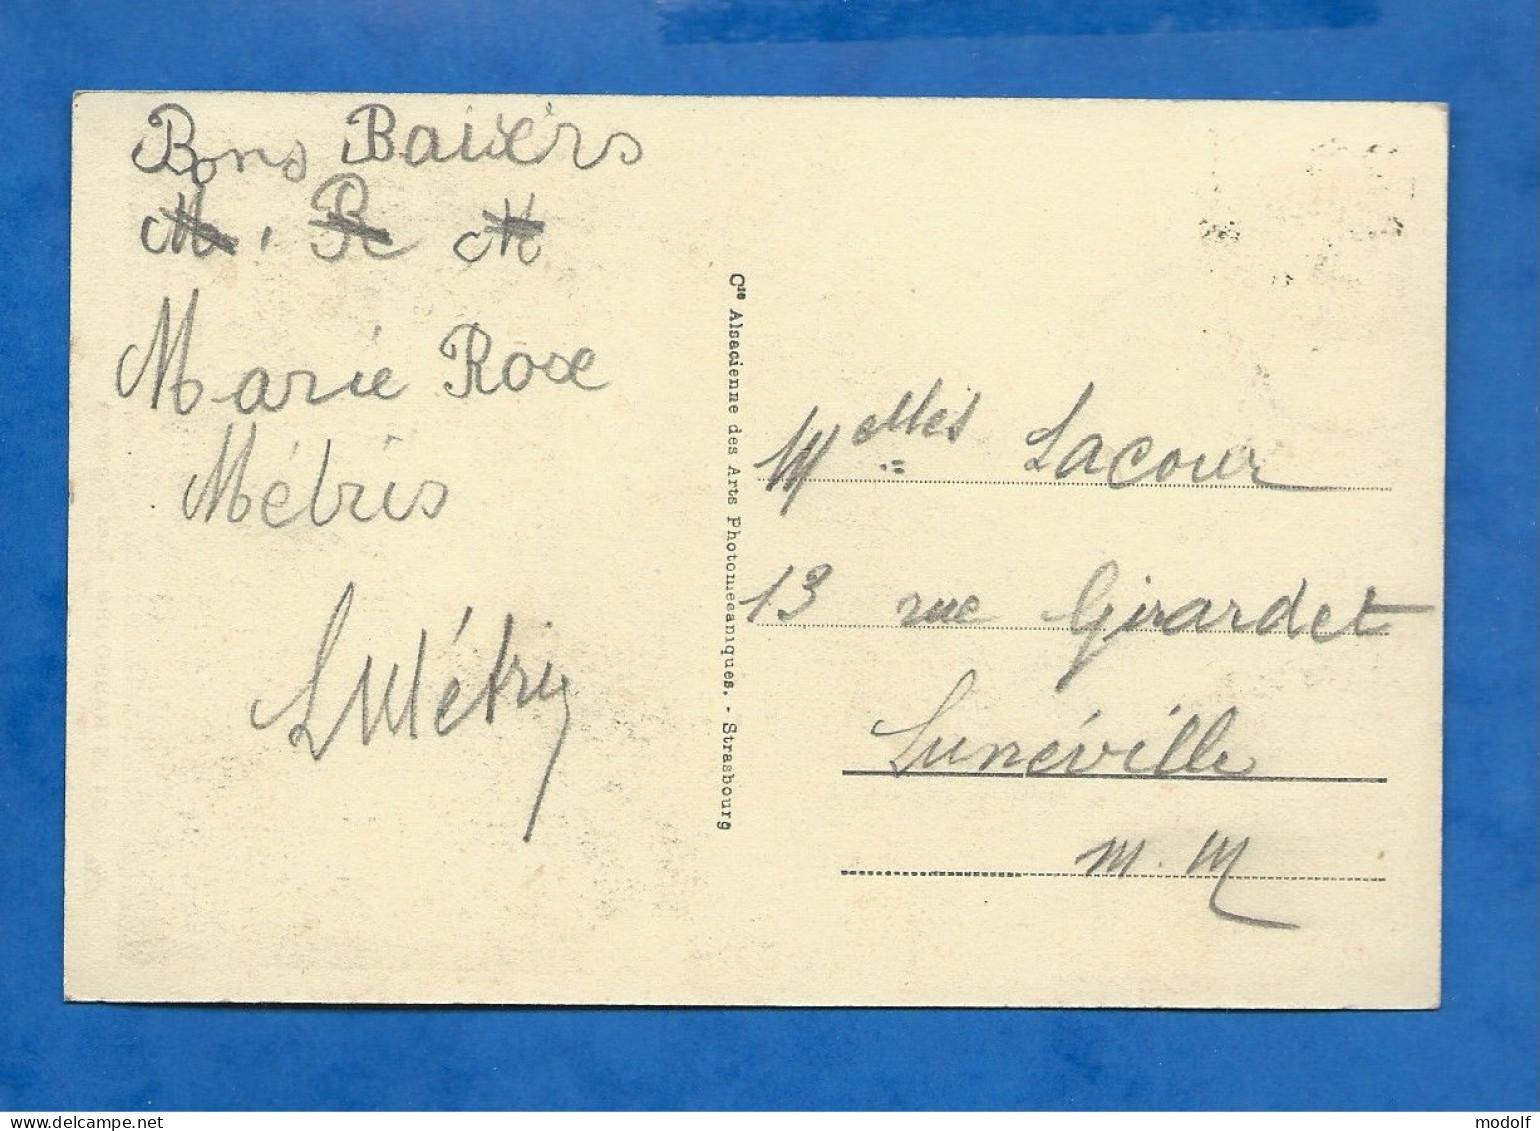 Bons Baixérs
M. R M
Marie Rose
Métris
LMétris
Cie Alsacienne des Arts Photomécaniques. - Strasbourg
Melles Lacour
13 rue Girardet
Lunéville
M. M
www.delcampe.net
modolf